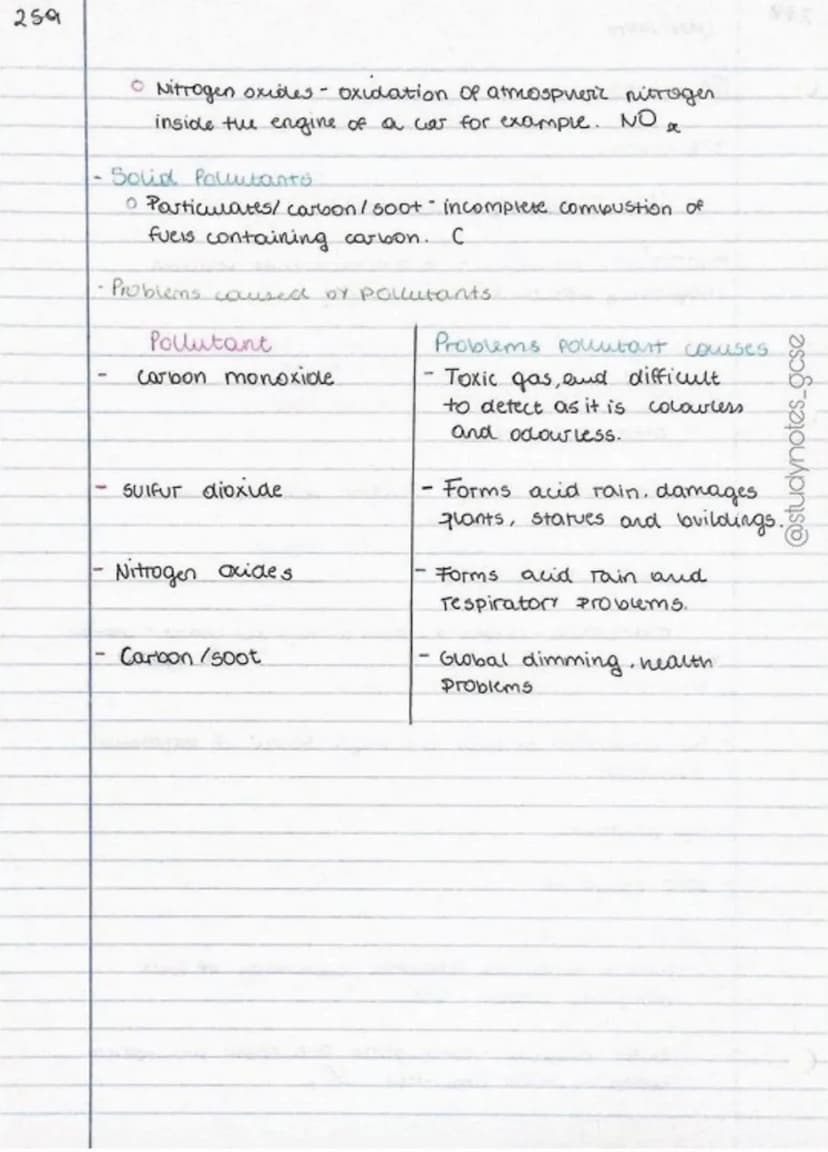 259
○ Nitrogen oxides - oxidation of atmospheric nitrogen
inside the engine of a car for example. NOx
- Solid Pollutants
○ Particulates/ carbon/soot - incomplete combustion of
fuels containing carbon. C
- Problems caused by pollutants
Pollutant
Problems pollutant causes
- carbon monoxide
- Toxic gas, and difficult
to detect as it is colourless
and odourless.
- sulfur dioxide
- Forms acid rain. damages
plants, statues and buildings.
- Nitrogen oxides
- Forms acid rain and
respiratory problems.
- Carbon/soot
- Global dimming, health
problems
@studynotes_gcse